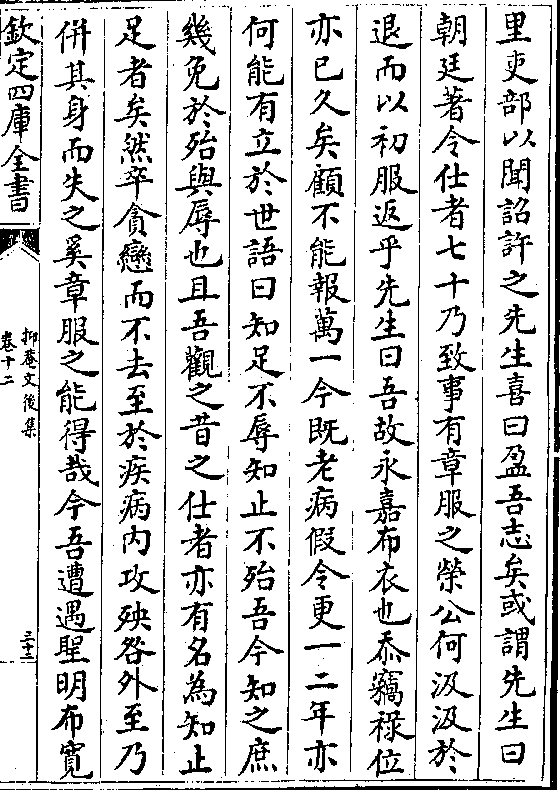 里吏部以聞詔許之先生喜曰盈吾志矣或謂先生曰
朝廷著令仕者七十乃致事有章服之榮公何汲汲於
退而以初服返乎先生曰吾故永嘉布衣也忝竊禄位
亦已久矣顧不能報萬一今既老病假令更一二年亦
何能有立於世語曰知足不辱知止不殆吾今知之庶
幾免於殆與辱也且吾觀之昔之仕者亦有名為知止
足者矣然卒貪戀而不去至於疾病内攻殃咎外至乃
併其身而失之奚章服之能得哉今吾遭遇聖明布寛
欽定四庫全書
抑菴文後集
卷十二
三十二